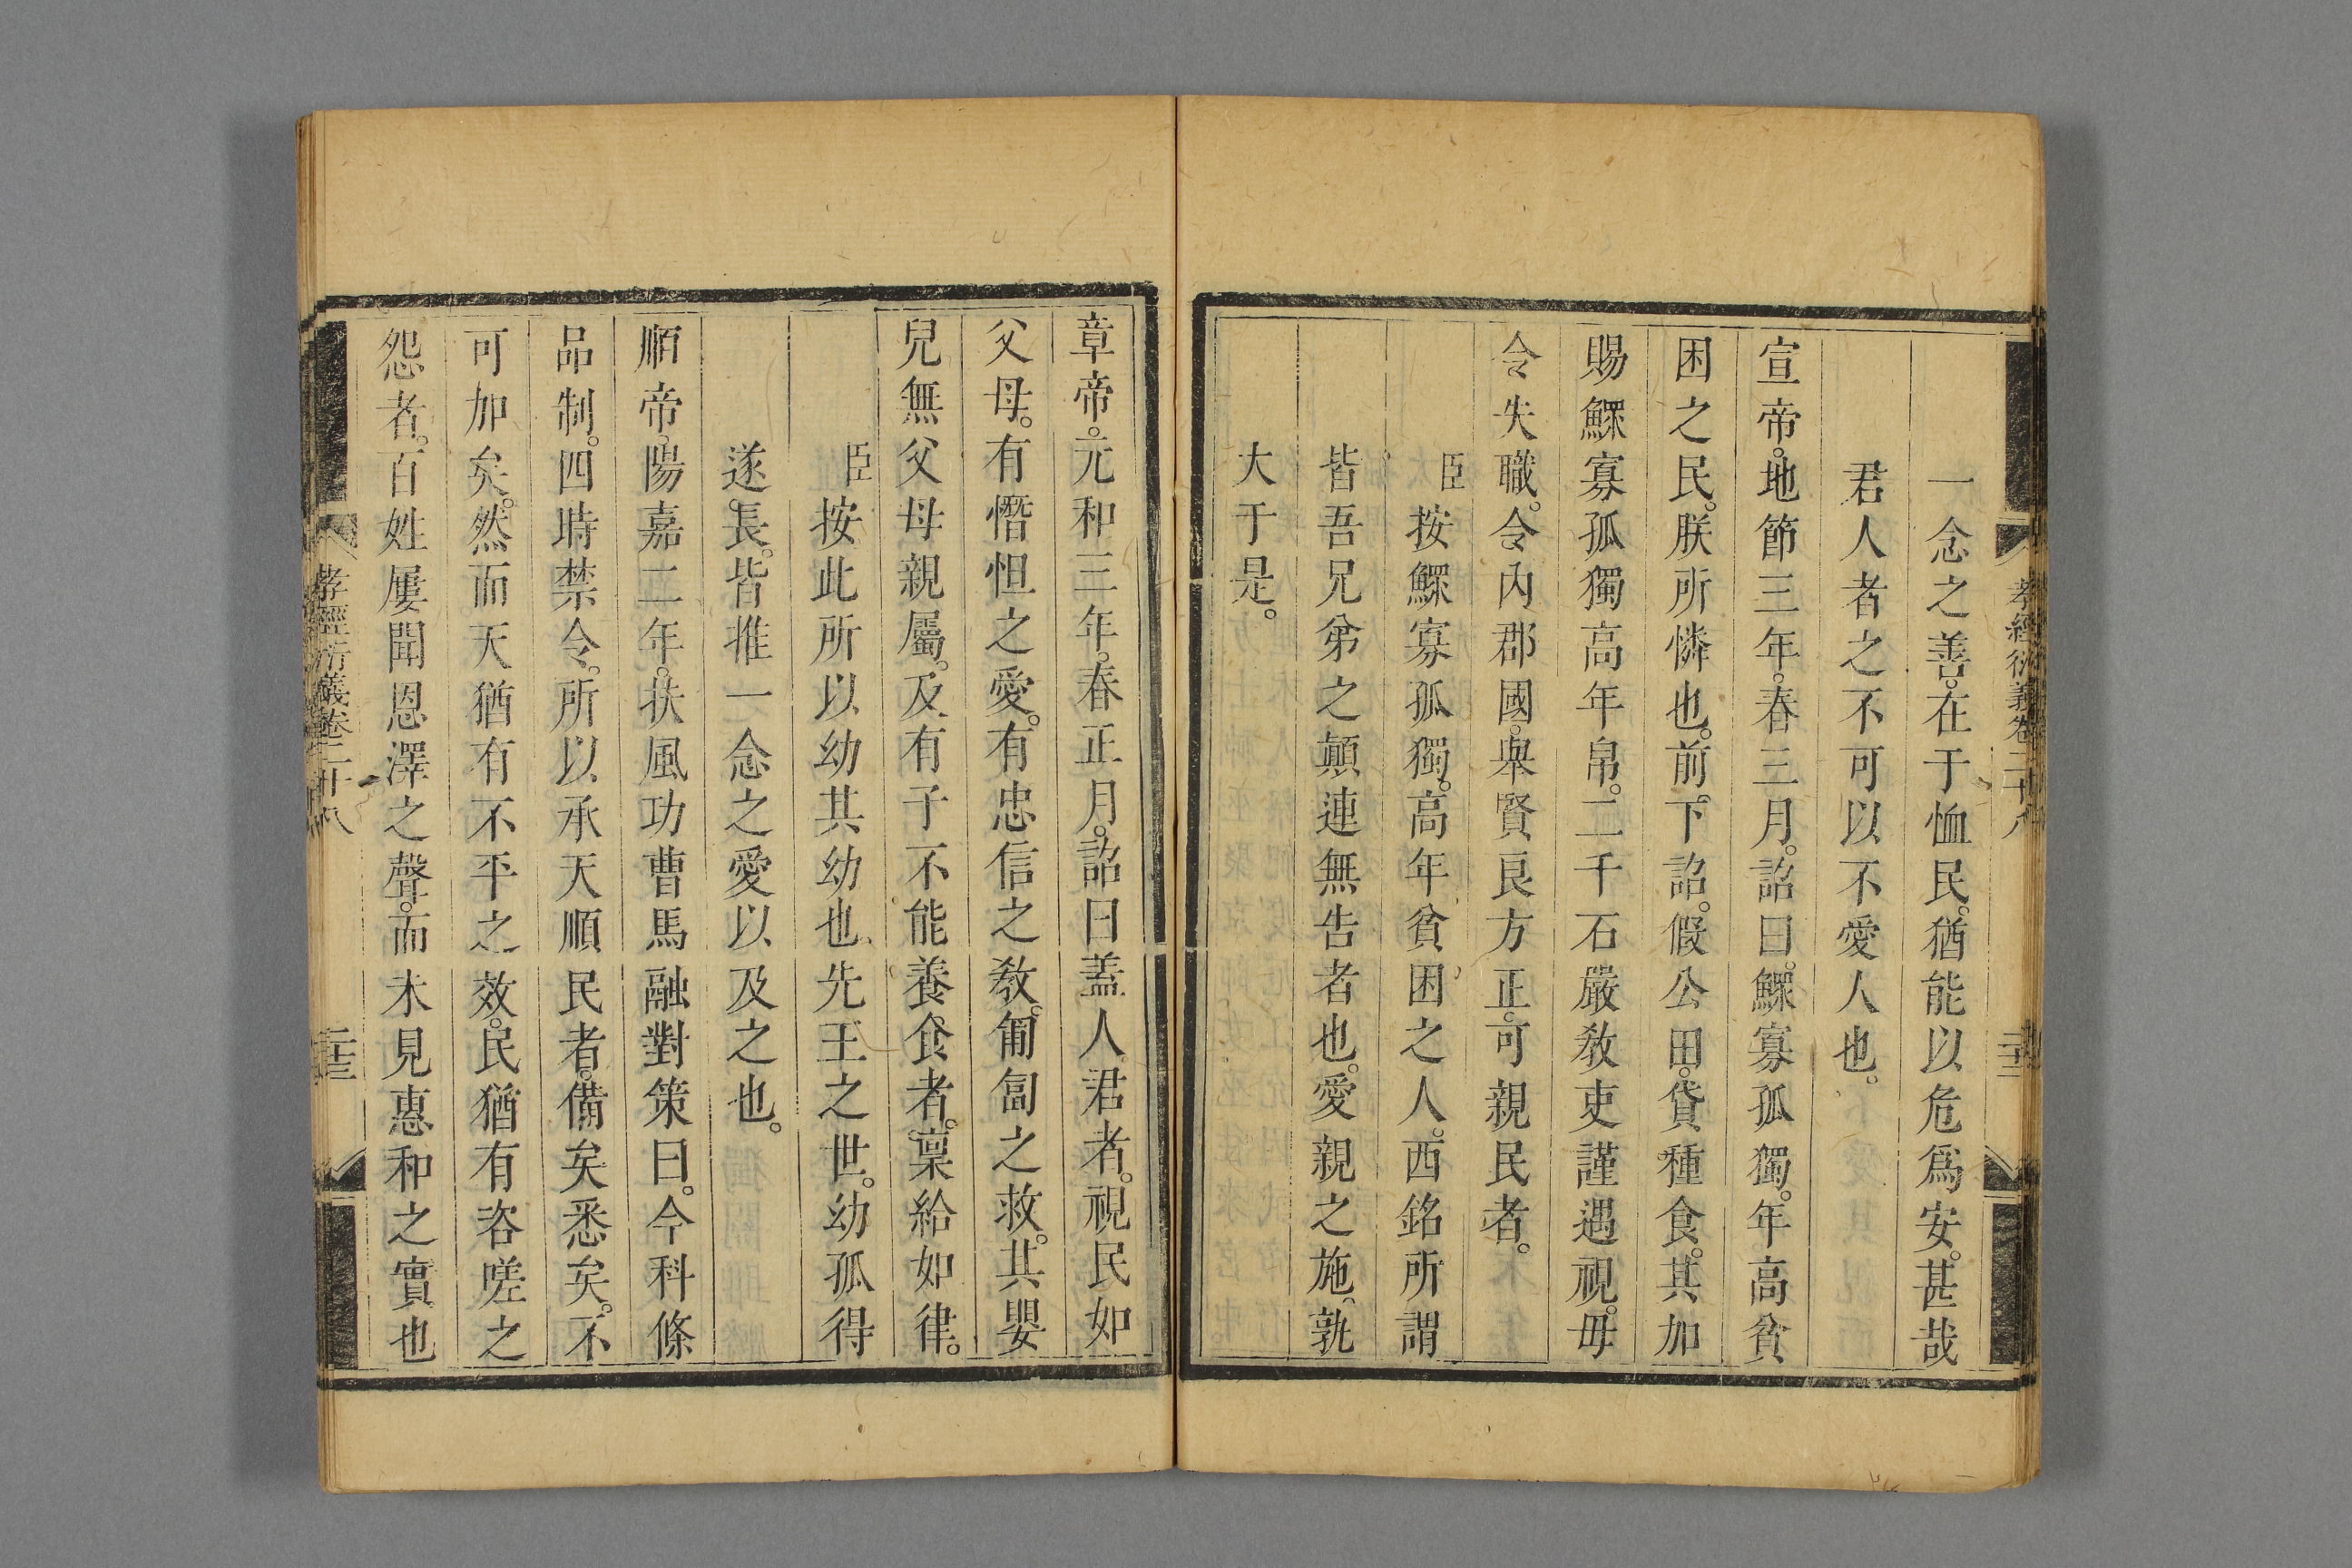 孝經衍義卷二十八
二十三
一念之善。在于恤民。猶能以危爲安。甚哉
君人者之不可以不愛人也。
宣帝。地節三年。春三月。詔曰。鰥寡孤獨。年高貧
困之民。朕所憐也。前。下詔。假公田。貸種食。其加
賜鰥寡孤獨高年帛。二千石嚴教吏謹遇視。毋
令失職。令內郡國。舉賢良方正。可親民者。
臣按鰥寡孤獨。高年貧困之人。西銘所謂
皆吾兄弟之顛連無告者也。愛親之施、孰
大于是。
章帝。元和三年。春正月。詔曰蓋人君者。視民如
父母。有憯怛之愛。有忠信之敎。匍匐之救。其嬰
兒無父母親屬。及有子不能養食者。稟給如律。
臣按此所以幼其幼也。先王之世。幼孤得
遂。長。皆推一念之愛以及之也。
順帝。陽嘉二年。扶風功曹馬融對策曰。今科條
品制。四時禁令。所以承天順民者。備矣悉矣。不
可加矣。然而天猶有不平之效。民猶有咨嗟之
怨者。百姓屢聞恩澤之聲。而未見惠和之實也
孝經衍義卷二十八
二十三